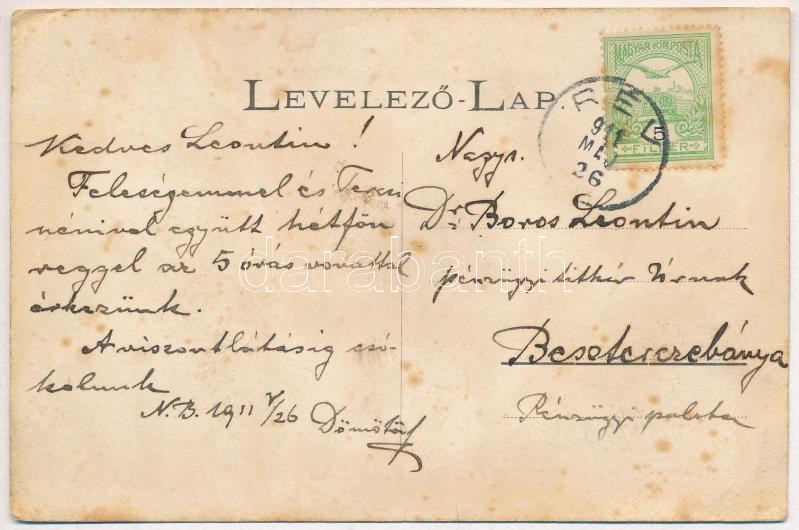 LEVELEZŐ-LAP.
MAGYAR KIR. POSTA
5
FILLÉR
911
MÁJ
26
Kedves Leontin!
Feleségemmel és Terus
nénivel együtt hétfőn
reggel az 5 órás vonattal
érkezünk.
A viszontlátásig csó-
kolunk
N.B. 1911 V/26 Dömötör
Nagys.
Dr. Boros Leontin
pénzügyi titkár Úrnak
Besztercebánya
Pénzügyi palota
darabanth